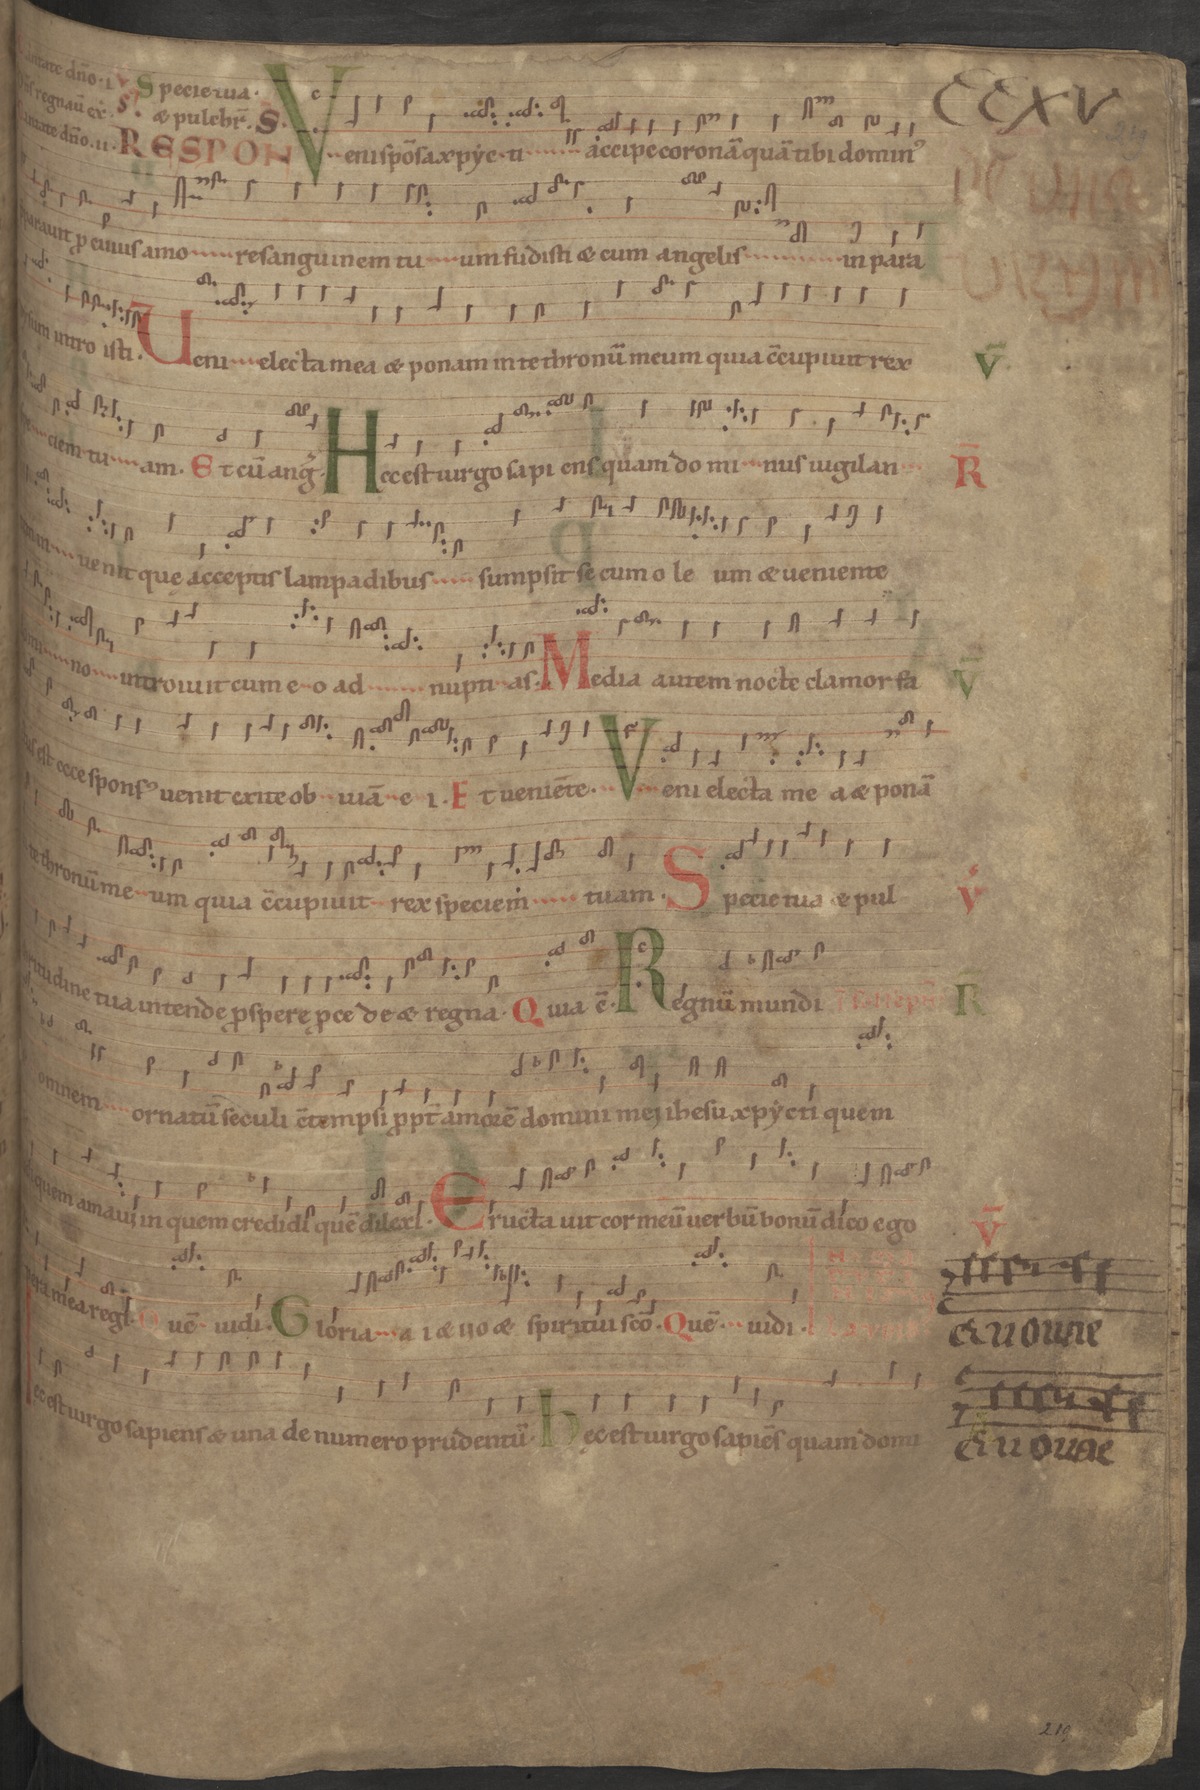 CCXV
cantate dn̄o · i V Specie tua ·
dn̄s regnau̅ ex̅ · S · & pulchr̄ . S .
Cantate dn̄o · ii · RESPON Veni spōsa xpỹe ti accipe coronā quā tibi domin⁹
parauit ꝓ cuius amo re sanguinem tu um fudisti & cum angelis in para
dysum intro isti . Veni electa mea & ponam in te thronū meum quia c̄cupiuit rex V̄
speciem tu am . Et cū ang̅ . Hec est uirgo sapi ens quam do mi nus uigilan R̄
uenit que acceptis lampadibus sumpsit se cum o le um & ueniente
domi no introiuit cum e o ad nupti as . Media autem nocte clamor fa V̄
ctus est ecce spons⁹ uenit exite ob uiā e i . Et ueniēte . Veni electa me a & ponā
in te thronū me um quia c̄cupiuit rex speciem tuam . Specie tua & pul V̄
critudine tua intende ꝓspere ꝓcede & regna . Quia c̄ . Regnū mundi R̄
& omnem ornatū seculi c̄tempsi ꝓpt̄ amorē domini mei ihesu xpỹcti quem
uidi quem amaui in quem credidi quē dilexi . Eructa uit cor meū uerbū bonū dico ego V̄
opera mea regi . Quē uidi . Gloria a i & ii o & spiritui scō . Quē uidi .
euouae
Hec est uirgo sapiens & una de numero prudentū . Hec est uirgo sapiēs quam domi
euouae
219